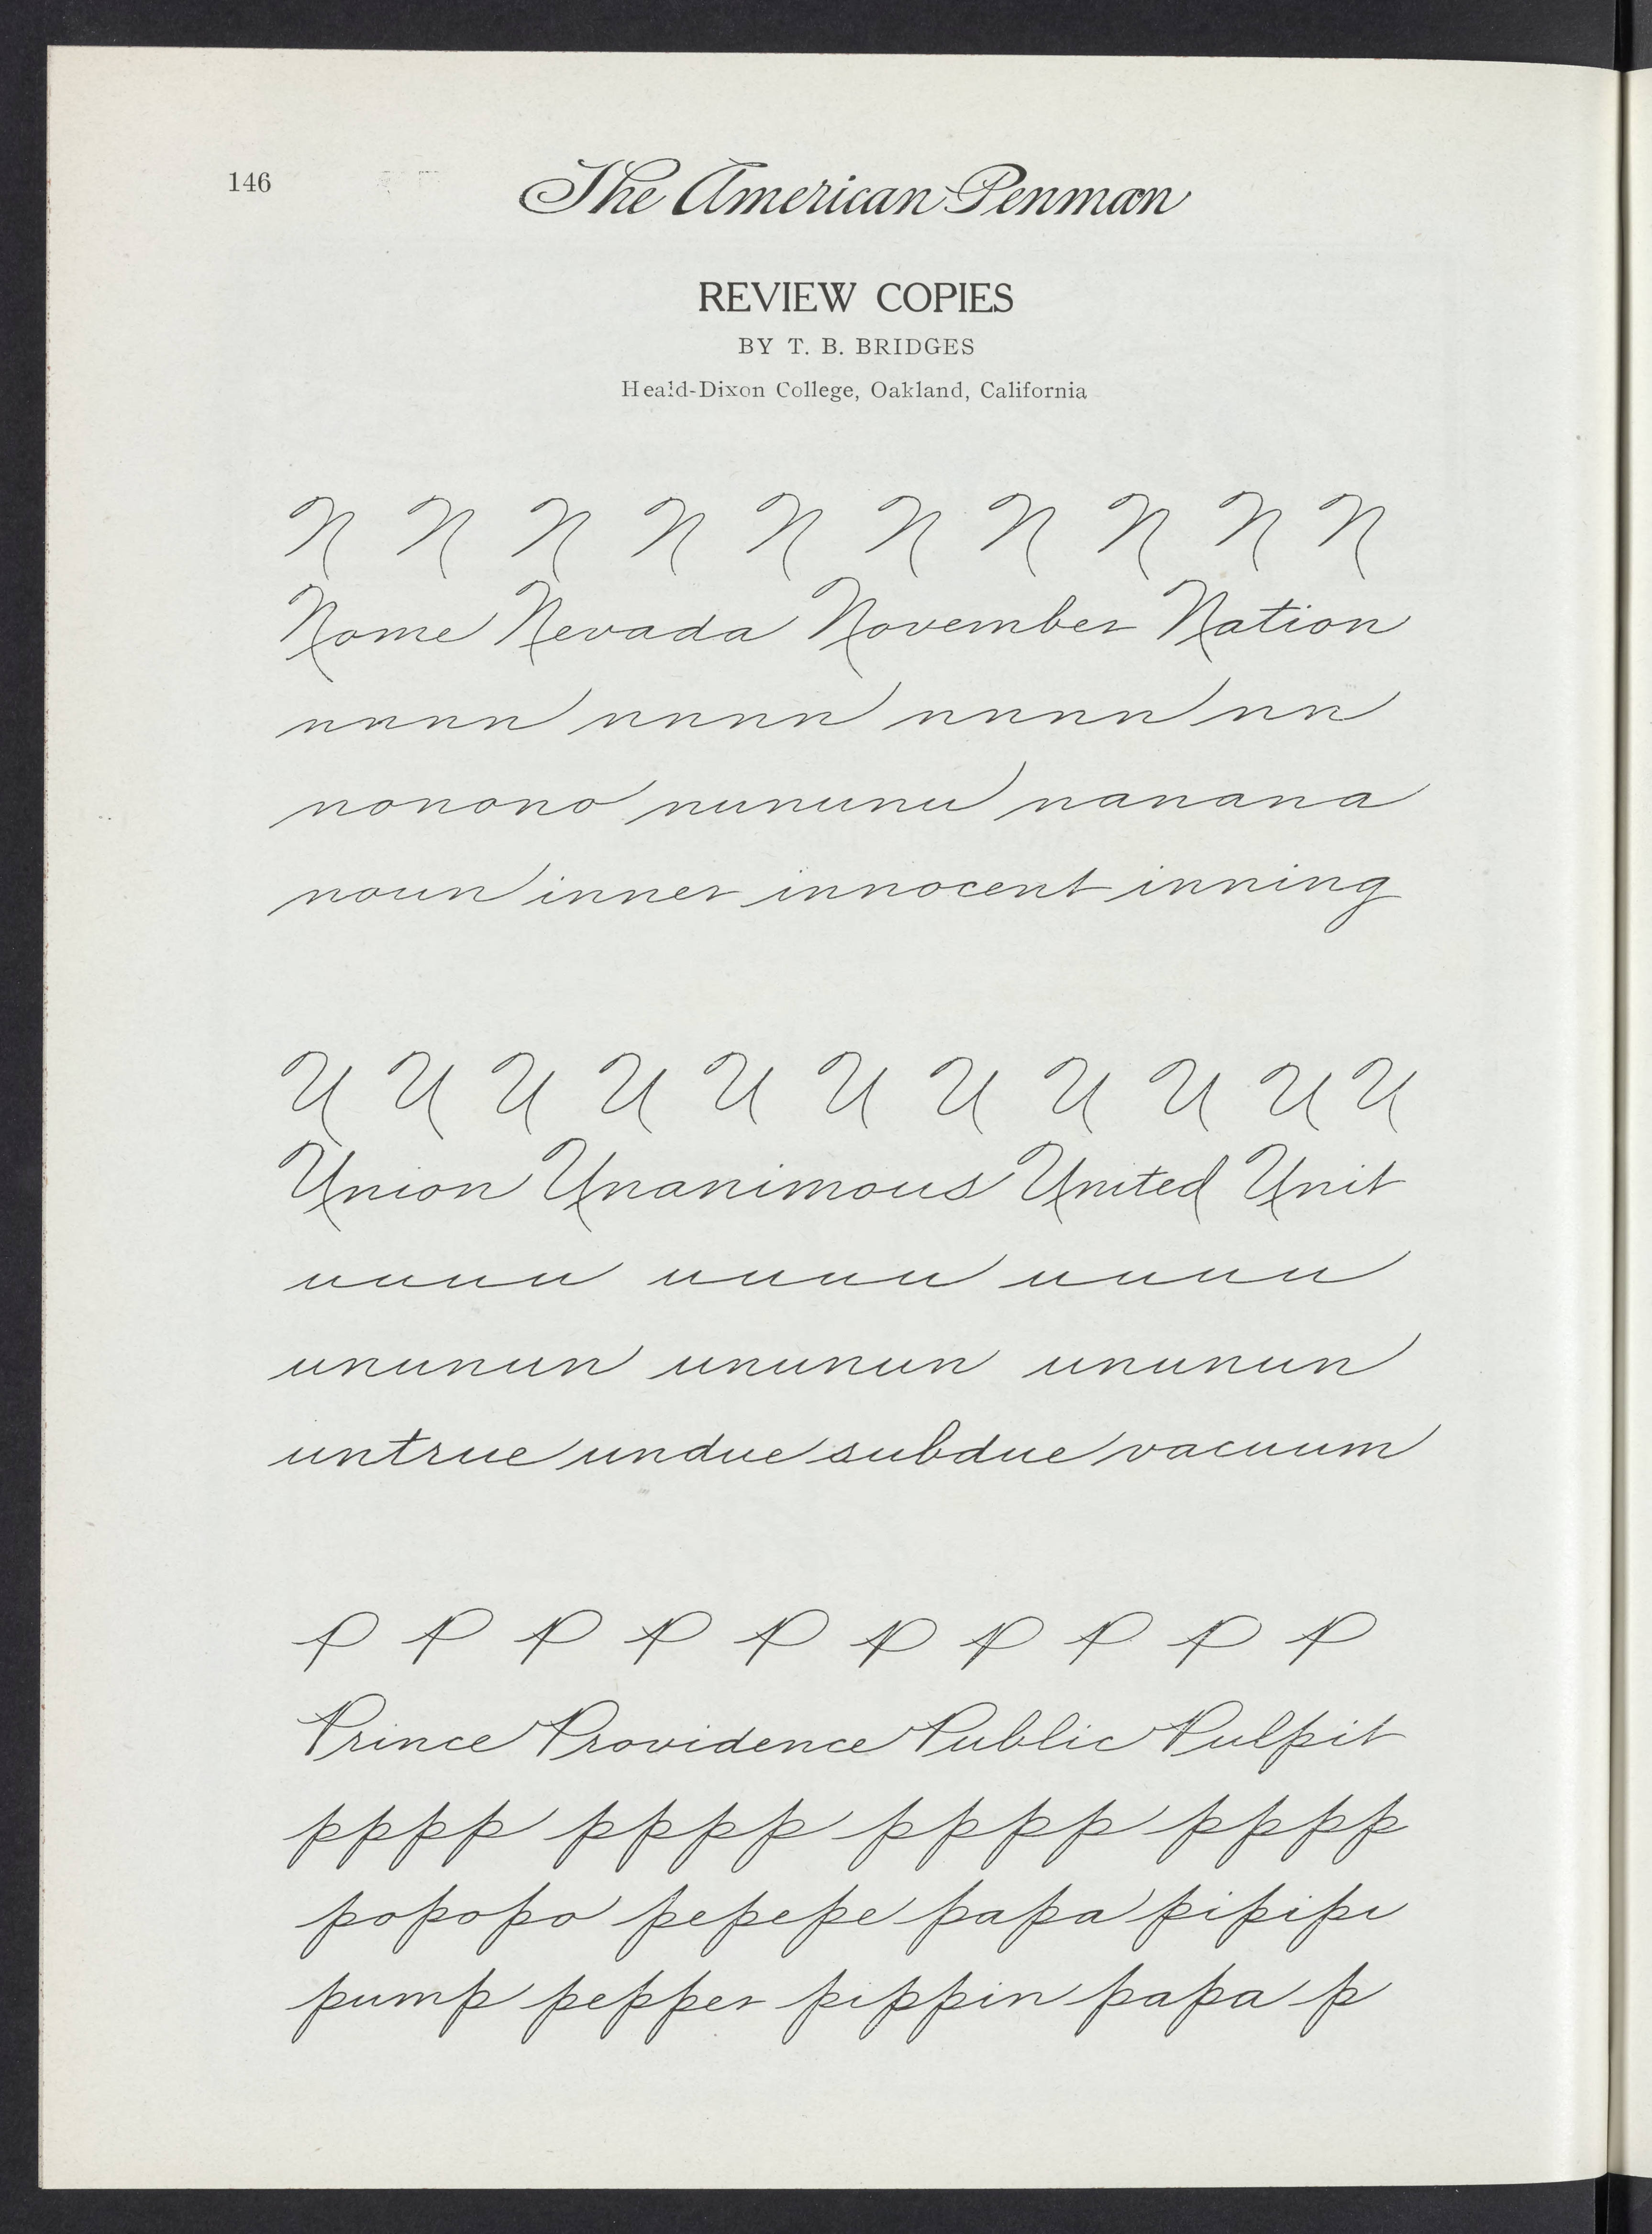 146
The American Penman
REVIEW COPIES
BY T. B. BRIDGES
Heald-Dixon College, Oakland, California
N N N N N N N N N N
Nome Nevada November Nation
nnnn nnnn nnnn nn
nonono nununu nanana
noun inner innocent inning
U U U U U U U U U U U
Union Unanimous United Unit
uuuu uuuu uuuu
ununun ununun ununun
untrue undue subdue vacuum
P P P P P P P P P P
Prince Providence Public Pulpit
pppp pppp pppp pppp
popopo pepepe papa pipipi
pump pepper pippin papa p